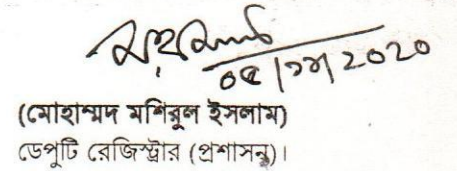 ০৫/১১/2020
(মোহাম্মদ মশিরুল ইসলাম)
ডেপুটি রেজিস্ট্রার (প্রশাসন)।